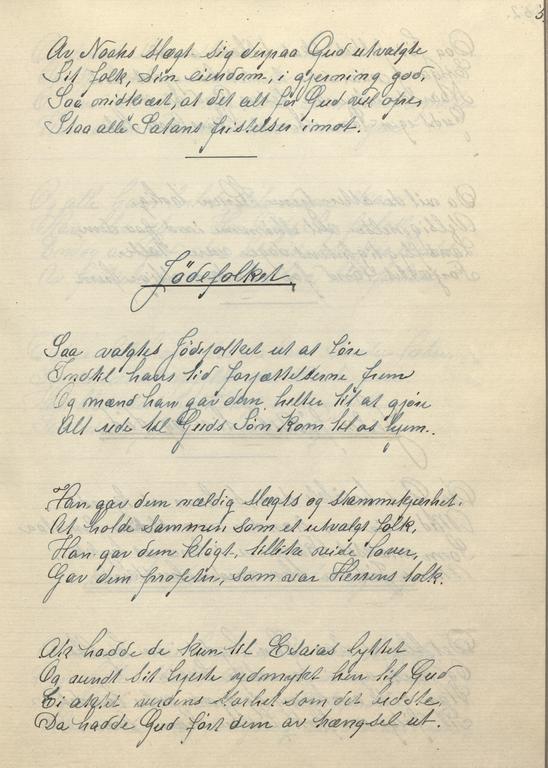 Av Noahs Slægt sig derpaa Gud utvalgte
Sit folk, Sin eiendom, i gjerning god,
Saa nidkært, at det alt for Gud vil ofre
Staa alle Satans fristelser imot.
Jödefolket.
Saa valgtes Jödefolket ut at före
Indtil hans tid forjættelserne frem
Og mænd han gav dem helter til at gjöre
Alt rede til Guds Sön kom til os hjem.
Han gav dem vældig Slægts og stammekjærhet.
At holde sammen, som et utvalgt folk,
Han gav dem kløgt, tillike vide love,
Gav dem profeter, som var Herrens tolk.
Ak hadde de kun til Esaias lyttet
Og vendt sit hjerte ydmykt hen til Gud
Ei aktet verdens Storhet som det bedste,
Da hadde Gud ført dem av trængsel ut.